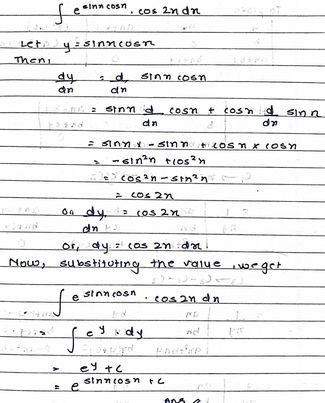 ∫ e^sinx cosx · cos 2x dx
Let y = sinx cosx
Then,
dy/dx = d/dx sinx cosx
= sinx d/dx cosx + cosx d/dx sinx
= sinx x - sinx + cosx x cosx
= -sin²x + cos²x
= cos²x - sin²x
= cos 2x
or dy/dx = cos 2x
or, dy = cos 2x dx
Now, substituting the value, we get
∫ e^sinx cosx · cos 2x dx
= ∫ e^y · dy
= e^y + c
= e^sinx cosx + c
Ans